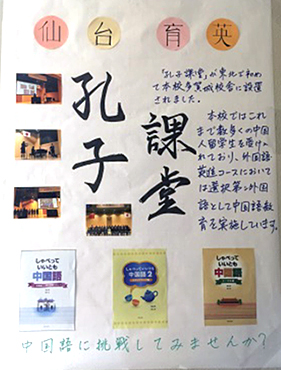 仙台育英
孔子
課堂
「孔子課堂」が東北で初め
て本校多賀城校舎に設置
されました。
本校ではこれ
まで数多くの中国
人留学生を受け入
れており、外国語
英進コースにおいて
は選択第2外国
語として中国語教
育を実施しています。
しゃべって
いいとも
中国語
しゃべっていいとも
中国語2
しゃべって
いいとも
中国語
中国語に挑戦してみませんか?